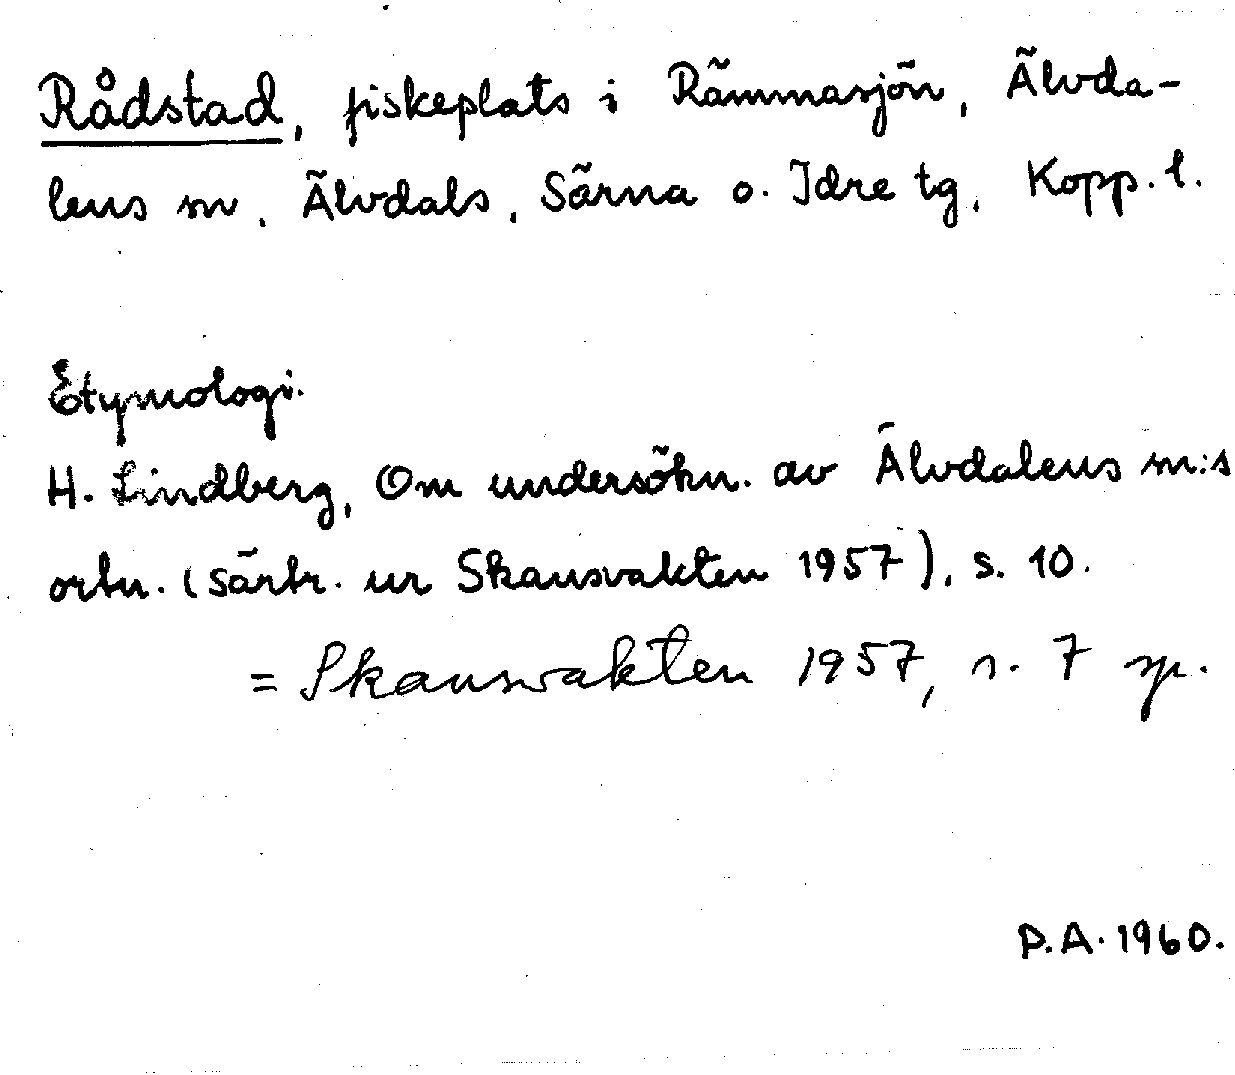 Rådstad, fiskeplats i Rämmasjön, Älvda-
lens sn, Älvdals, Särna o. Idre tg, Kopp. l.
Etymologi.
H. Lindberg, Om undersökn. av Älvdalens sn:s
ortn. (särtr. ur Skansvakten 1957), s. 10.
= Skansvakten 1957, s. 7 sp.
P.A. 1960.